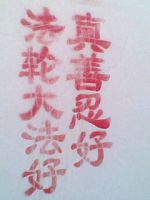 真善忍好
法轮大法好